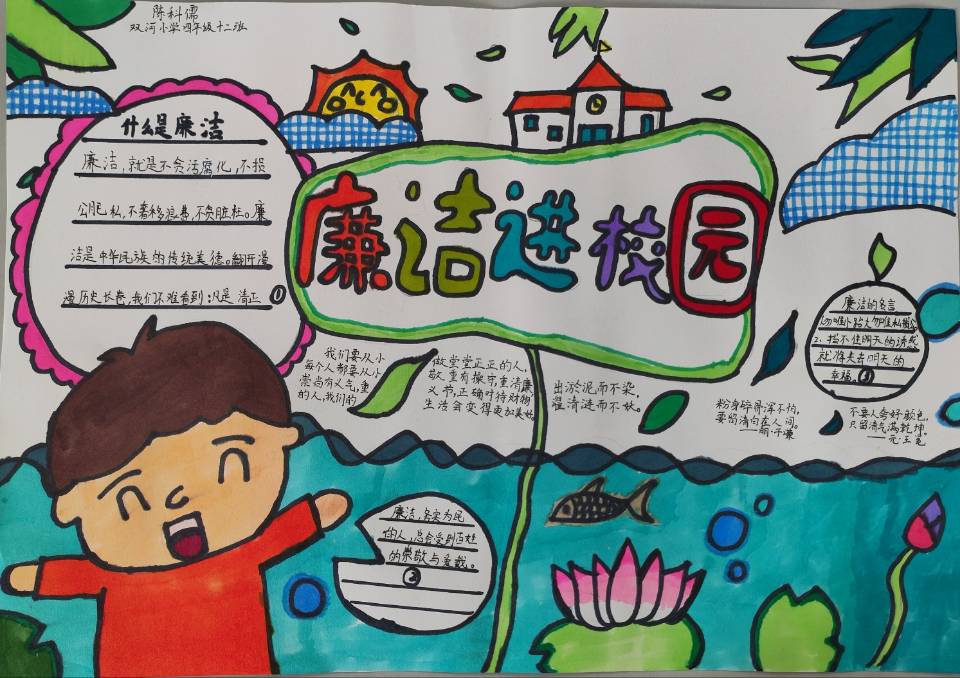 陈科儒
双河小学四年级十二班
廉洁进校园
什么是廉洁
廉洁,就是不贪活腐化,不损
公肥私,不奢移浪费,不贪脏枉。廉
洁是中华民族的传统美德。翻开漫
漫历史长卷,我们不难看到:凡是 清正 ①
廉洁,务实为民
的人,总会受到百姓
的崇敬与爱戴。
②
我们要从小
每个人都要从小
崇尚有义气,重
的人,我们的
做堂堂正正的人,
敬重有操守重清廉
义节,正确对待财物
生活会变得更加美好
出淤泥而不染,
濯清涟而不妖。
粉身碎骨浑不怕,
要留清白在人间。
——明·于谦
廉洁的名言
2、挡不住明天的诱惑
就将失去明天的
幸福。③
不要人夸好颜色,
只留清气满乾坤
——元·王冕